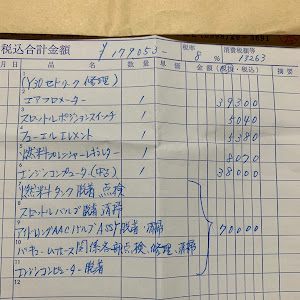 税込合計金額 ¥179053- 税率 8% 消費税額等 13263
月日 品名 数量 単価 金額(税抜・税込) 摘要
1 (Y30セドリック修理)
2 エアフロメーター 1 39300
3 スロットルポジションスイッチ 1 5040
4 フューエルエレメント 1 5380
5 燃料プレッシャーレギュレター 1 8070
6 エンジンコンピューター(中古) 1 38000
7 燃料タンク脱着、点検
8 スロットルバルブ脱着 清掃
9 アイドリングAACバルブASSY脱着・清掃 70000
10 バキュームホース関係各部点検、修理、清掃
11 エンジンコンピューター脱着
12